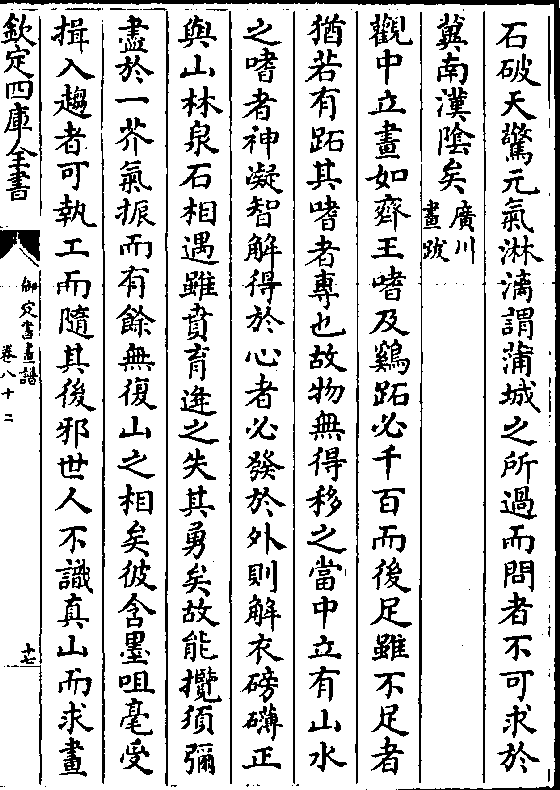 石破天驚元氣淋漓謂蒲城之所過而問者不可求於
冀南漢陰矣廣川畫跋
觀中立畫如齊王嗜及鷄跖必千百而後足雖不足者
猶若有跖其嗜者專也故物無得移之當中立有山水
之嗜者神凝智解得於心者必發於外則解衣磅礴正
與山林泉石相遇雖賁育逢之失其勇矣故能攬須彌
盡於一芥氣振而有餘無復山之相矣彼含墨咀毫受
揖入趨者可執工而隨其後邪世人不識真山而求畫
欽定四庫全書
御定書畫譜
卷八十二
十七